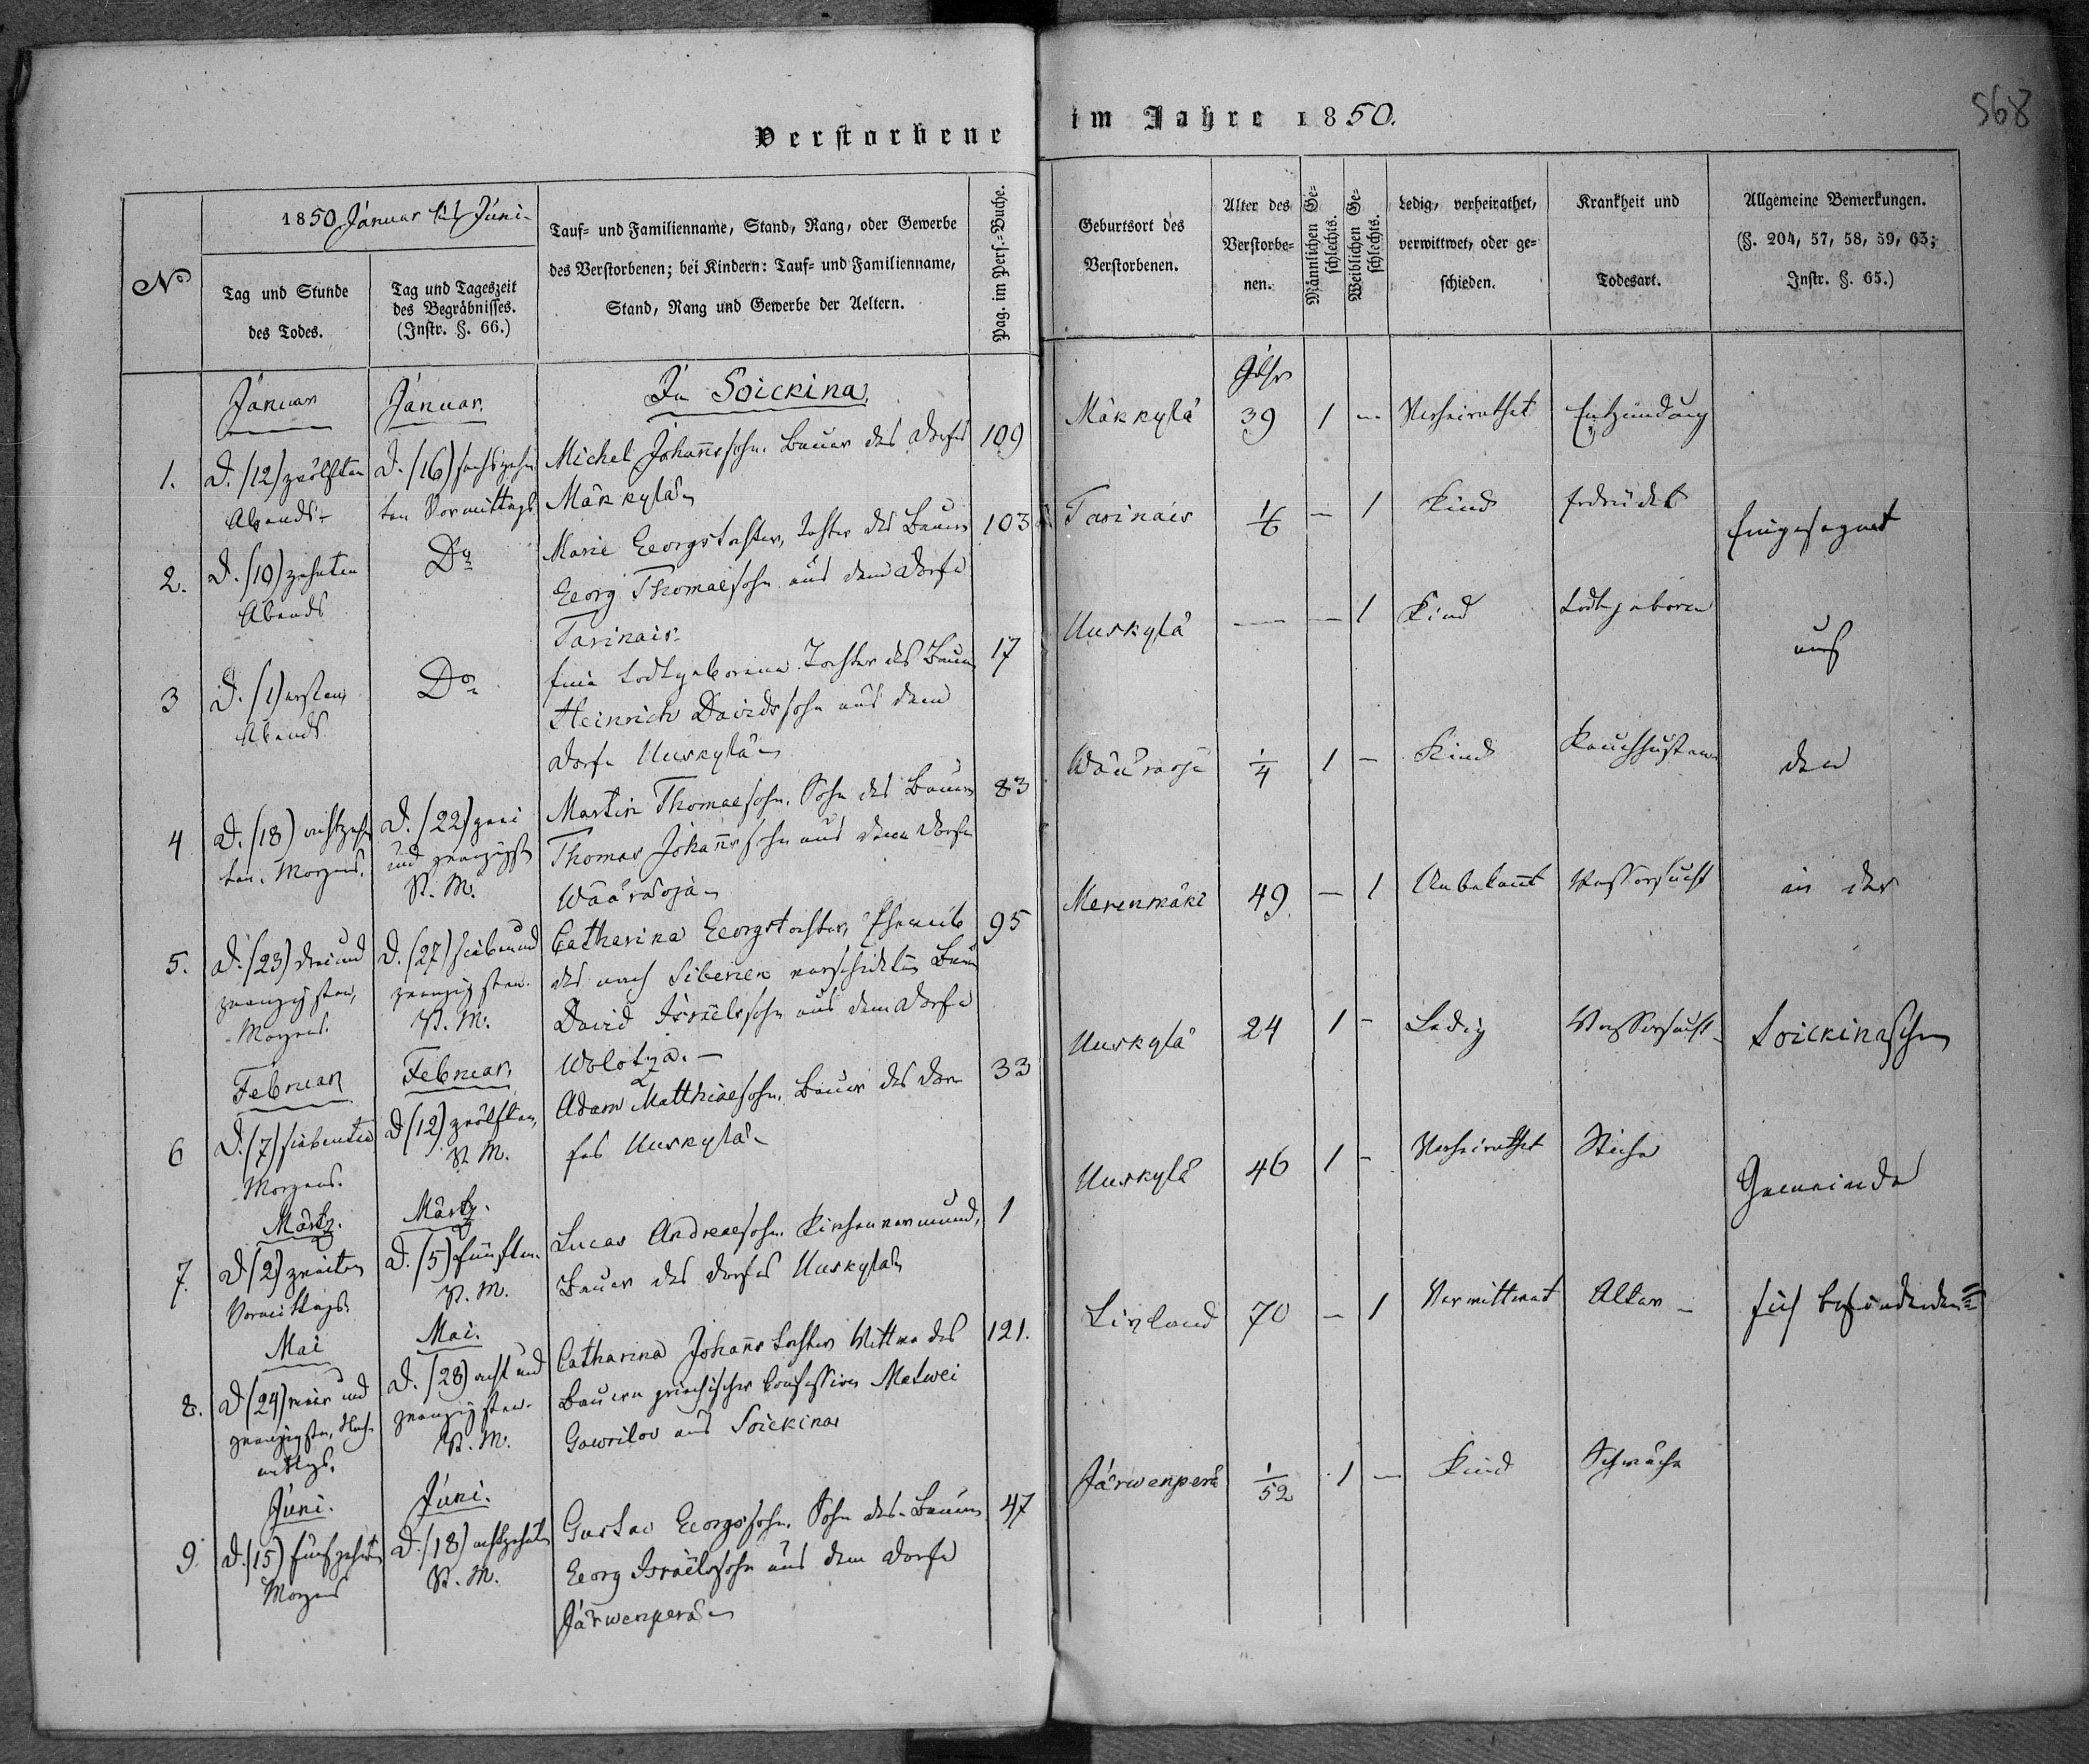 568
Verstorbene im Jahre 1850.
№
1850 Januar bis Juni
Tag und Stunde
des Todes.
Tag und Tageszeit
des Begräbnisses.
(Instr. §. 66.)
Tauf= und Familienname, Stand, Rang, oder Gewerbe
des Verstorbenen; bei Kindern: Tauf= und Familienname,
Stand, Rang und Gewerbe der Aeltern.
Pag. im Pers.=Buche.
Geburtsort des
Verstorbenen.
Alter des
Verstorbe=
nen.
Männlichen Ge=
schlechts.
Weiblichen Ge=
schlechts.
Ledig, verheirathet,
verwittwet, oder ge=
schieden.
Krankheit und
Todesart.
Allgemeine Bemerkungen.
(§. 204, 57, 58, 59, 63;
Instr. §. 65.)
Januar Januar. In Soickina. Jahr
1. D. (12) zwölften D. (16) sechszehn Michel Johannssohn. Bauer des Dorfes 109 Mäkkylä 39 1 — Verheirathet Entzündung
Abends ten Vormittags Mäkkylä
2. D. (10) zehnten Do Marie Georgstochter, Tochter des Bauern 103 Tarinais 1/6 — 1 Kind erdrückt Eingesegnet
Abends Georg Thomaesohn aus dem Dorfe
Tarinais.
3 D. (1) ersten, Do Eine todtgeborene Tochter des Bauern 17 Uuskylä — — 1 Kind todtgeboren auf
Abends Heinrich Davidssohn aus dem
Dorfe Uuskylä
4 D. (18) achtzehn D. (22) zwei Martin Thomaesohn. Sohn des Bauern 83 1/4 1 — Kind Keuchhusten den
ten. Morgens. und zwanzigst Thomas Johannssohn aus dem Dorfe
V. M.
5. D. (23) drei und D. (27) sieben und Catharina Georgstochter, Eheweib 95 Merenmäki 49. — 1 Unbekannt Wassersucht in der
zwanzigsten, zwanzigsten. des nach Siberien verschickten Bauern
Morgens. V. M. David Israelssohn aus dem Dorfe
Februar Februar, Wolotza. —
6 D. (7) siebenten D (12) zwölften, Adam Matthiaesohn. Bauer des Dor= 33 Uuskylä 24 1 — Ledig Wassersucht Soickinaschen
Morgens. V. M. fes Uuskylä
Märtz. Märtz.
7. D (2) zweiten D. (5) fünften. Lucas Andreaesohn. Kirchenvormund, 1 Uuskylä 46 1 — Verheirathet Stiche Gemeinde
Vormittags. V. M. Bauer des Dorfes Uuskylä
Mai Mai.
8. D (24) vier und D. (28) acht und Catharina Johannstochter Wittwe des 121. Livland 70 — 1 Verwittwet Alter — sich befindenden
zwanzigsten, Nach= zwanzigsten. Bauern griechischer Confession Matwei
mittags. V. M. Gawrilov aus Soickina
Juni. Juni.
9. D. (15) fünfzehnten D. (18) achtzehnten Gustav Georgssohn. Sohn des Bauern 47 Järwenperä 1/52 1 — Kind Schwäche
Morgens V. M. Georg Israelssohn aus dem Dorfe
Järwenperä